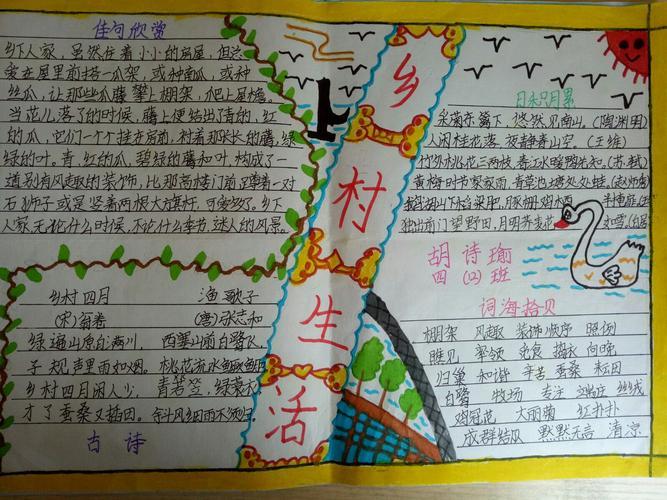 佳句欣赏
乡下人家，虽然住着小小的房屋，但总
爱在屋里前搭一瓜架，或种南瓜，或种
丝瓜，让那些瓜藤攀上棚架，爬上屋檐。
当花儿落了的时候，藤上便结出了青的，红
的瓜，它们一个个挂在房前，衬着那长长的藤，绿
绿的叶。青，红的瓜，碧绿的藤和叶，构成了一
道别有风趣的装饰，比那高楼门前蹲着一对
石狮子或是竖着两根大旗杆，可爱多了。乡下
人家无论什么时候，不论什么季节，迷人的风景。
乡村四月
(宋)翁卷
绿遍山原白满川，
子规声里雨如烟。
乡村四月闲人少，
才了蚕桑又插田。
渔歌子
(唐)张志和
西塞山前白鹭飞，
桃花流水鳜鱼肥
青箬笠，绿蓑衣
斜风细雨不须归。
古诗
乡村生活
日未只月累
采菊东篱下，悠然见南山。(陶渊明)
人闲桂花落，夜静春山空。(王维)
竹外桃花三两枝，春江水暖鸭先知。(苏轼)
黄梅时节家家雨，青草池塘处处蛙。(赵师秀)
独出前门望野田，月明荞麦花
胡诗瑜
四(12)班
词海拾贝
棚架 风趣 装饰 顺序 照例
瞧见 率领 觅食 捣衣 向晚
归巢 和谐 辛苦 蚕桑 耘田
白鹭 牧场 专注
鸡冠花 大丽菊 红扑扑
成群结队 默默无言 清凉